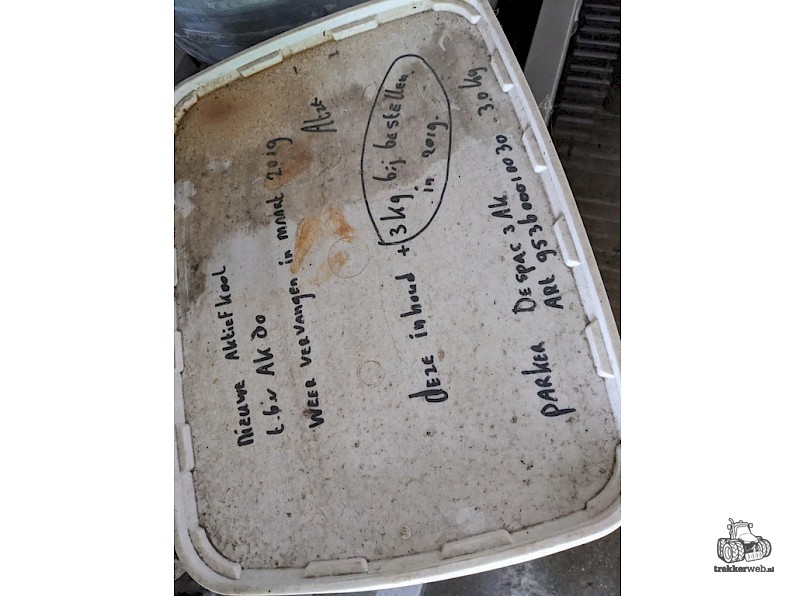 Nieuwe Aktief Kool
t.b.v AK 20
Weer vervangen in maart 2019
Deze inhoud + 3 kg bij bestellen
in 2019.
Parker Despac 3 AK 30 kg
Art 95360001 0030
trekkerweb.nl